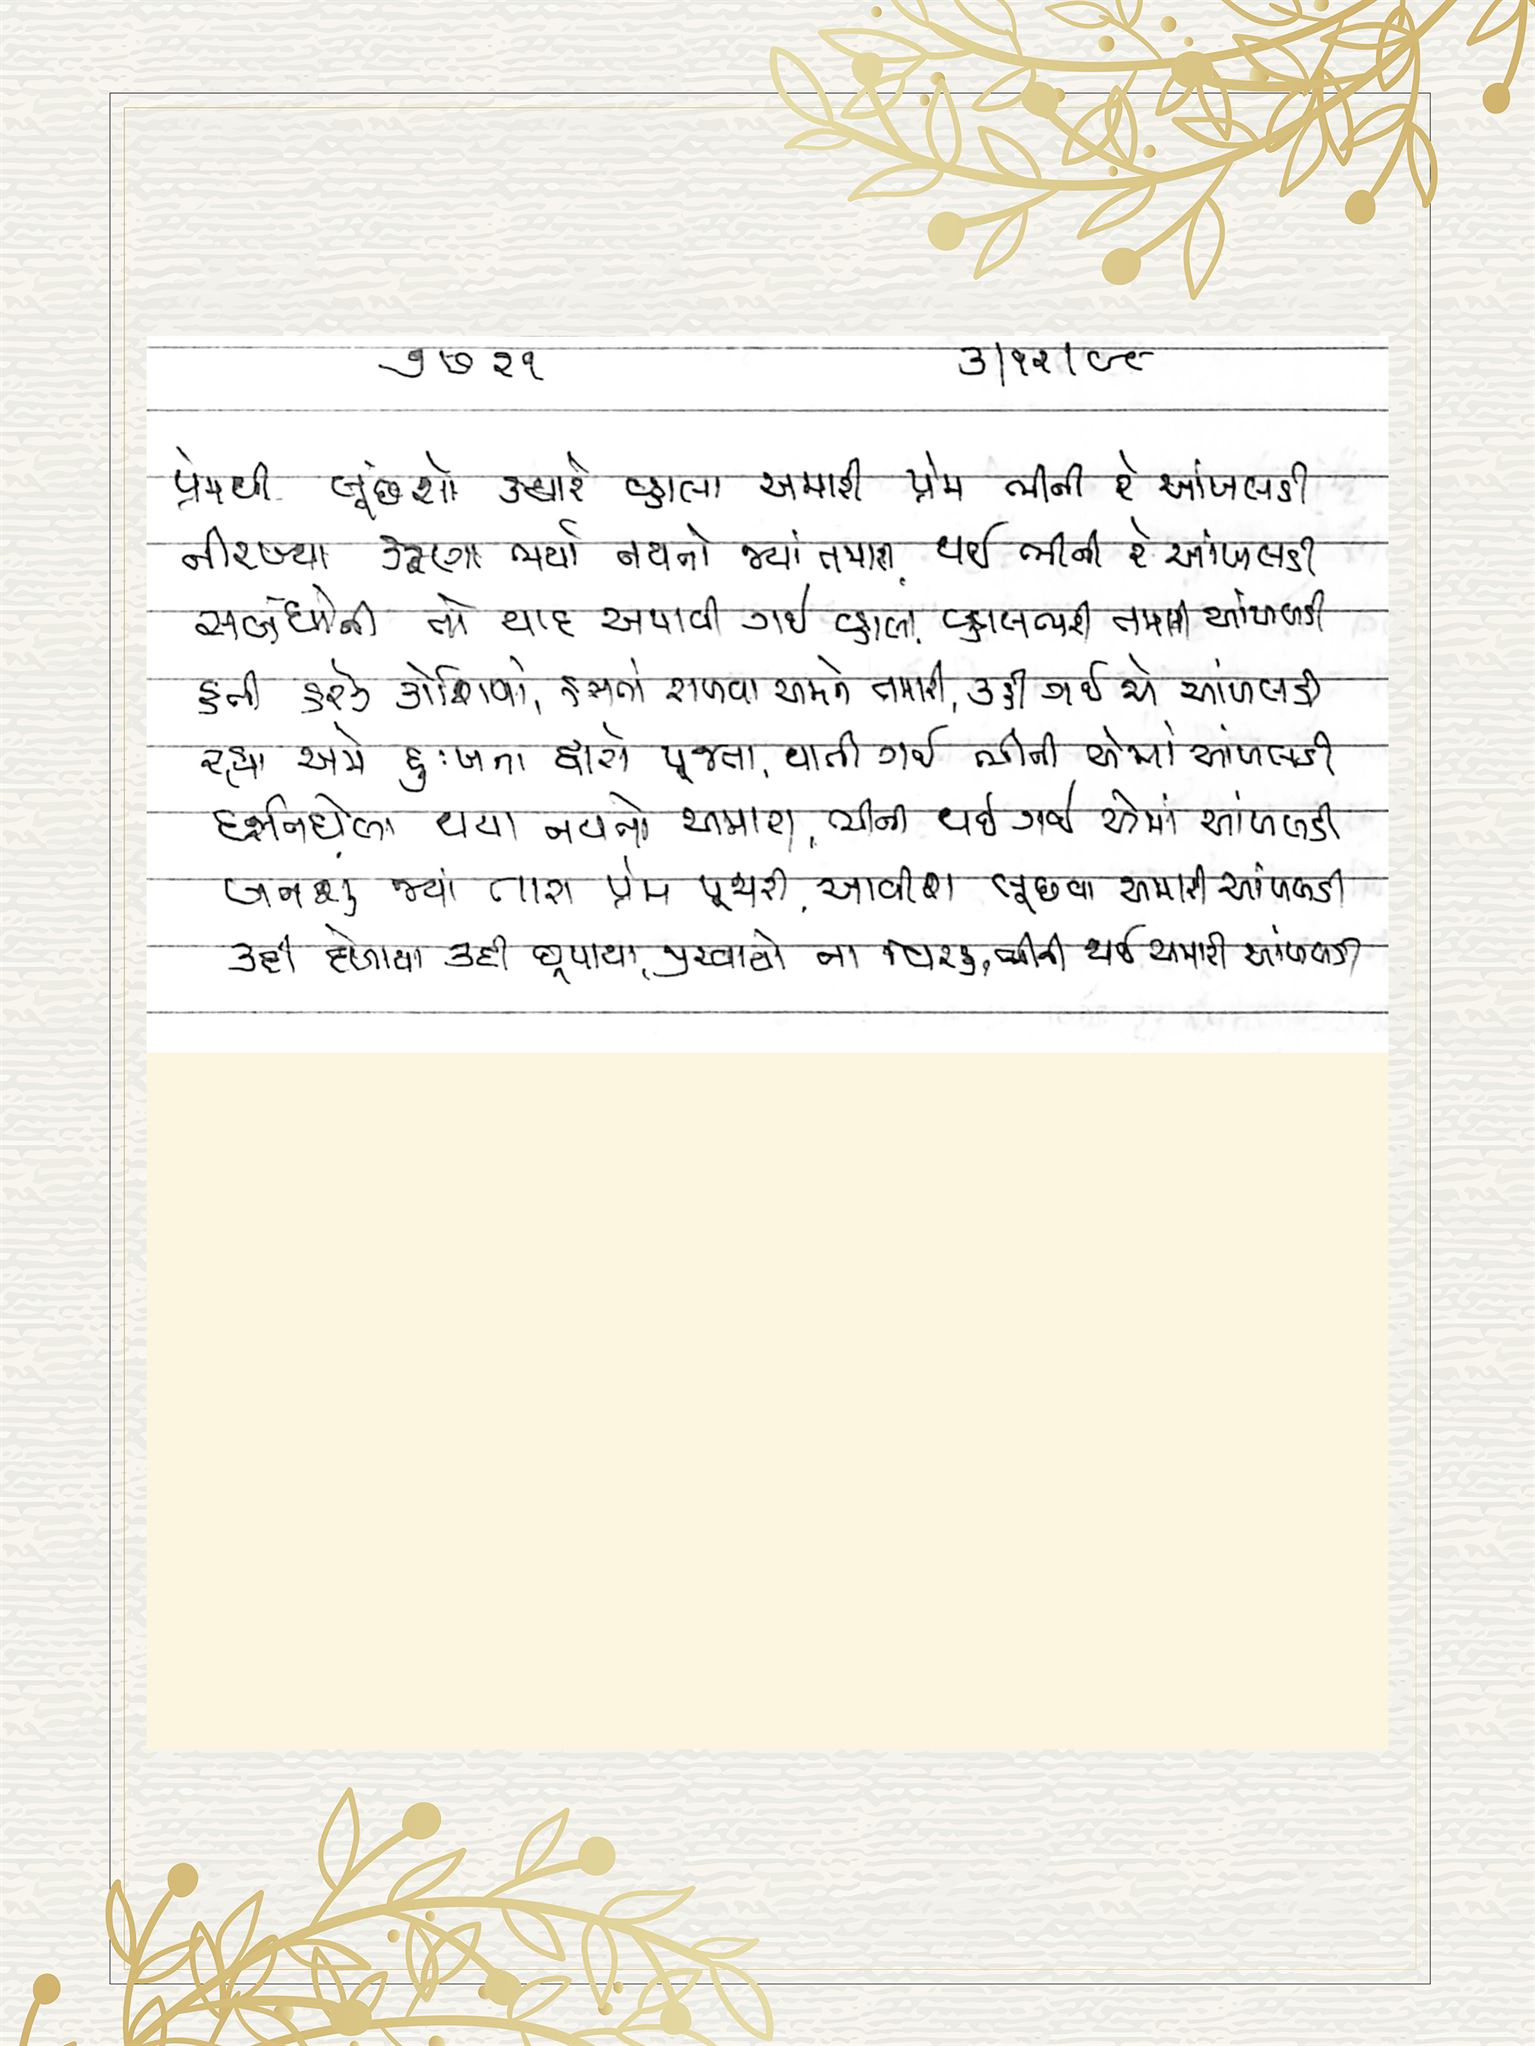 ૭૭૨૧ ૩/૧૨/૯૮
પ્રેમથી લૂંછશો ક્યારે વ્હાલા અમારી પ્રેમ ભીની રે આંખલડી
નીરખ્યા કરુણા ભર્યા નયનો જ્યાં તમારા, થઈ ભીની રે આંખલડી
સંબંધોની તો યાદ અપાવી ગઈ વ્હાલા, વ્હાલભરી તમારી આંખલડી
કરી કોશિશો, હસતાં રાખવા અમને તમારી, કરી ગઈ એ આંખલડી
રહ્યા અમે દુઃખના દ્વારો પૂજતા, થાતી ગઈ ભીની એમાં આંખલડી
દર્શનઘેલા થયા નયનો અમારા, ભીની થઈ ગઈ એમાં આંખલડી
બનશું જ્યાં તારા પ્રેમ પૂજારી, આવીશ લૂછવા અમારી આંખલડી
કદી દેખાયા કદી છૂપાયા, ભીની થઈ અમારી આંખલડી